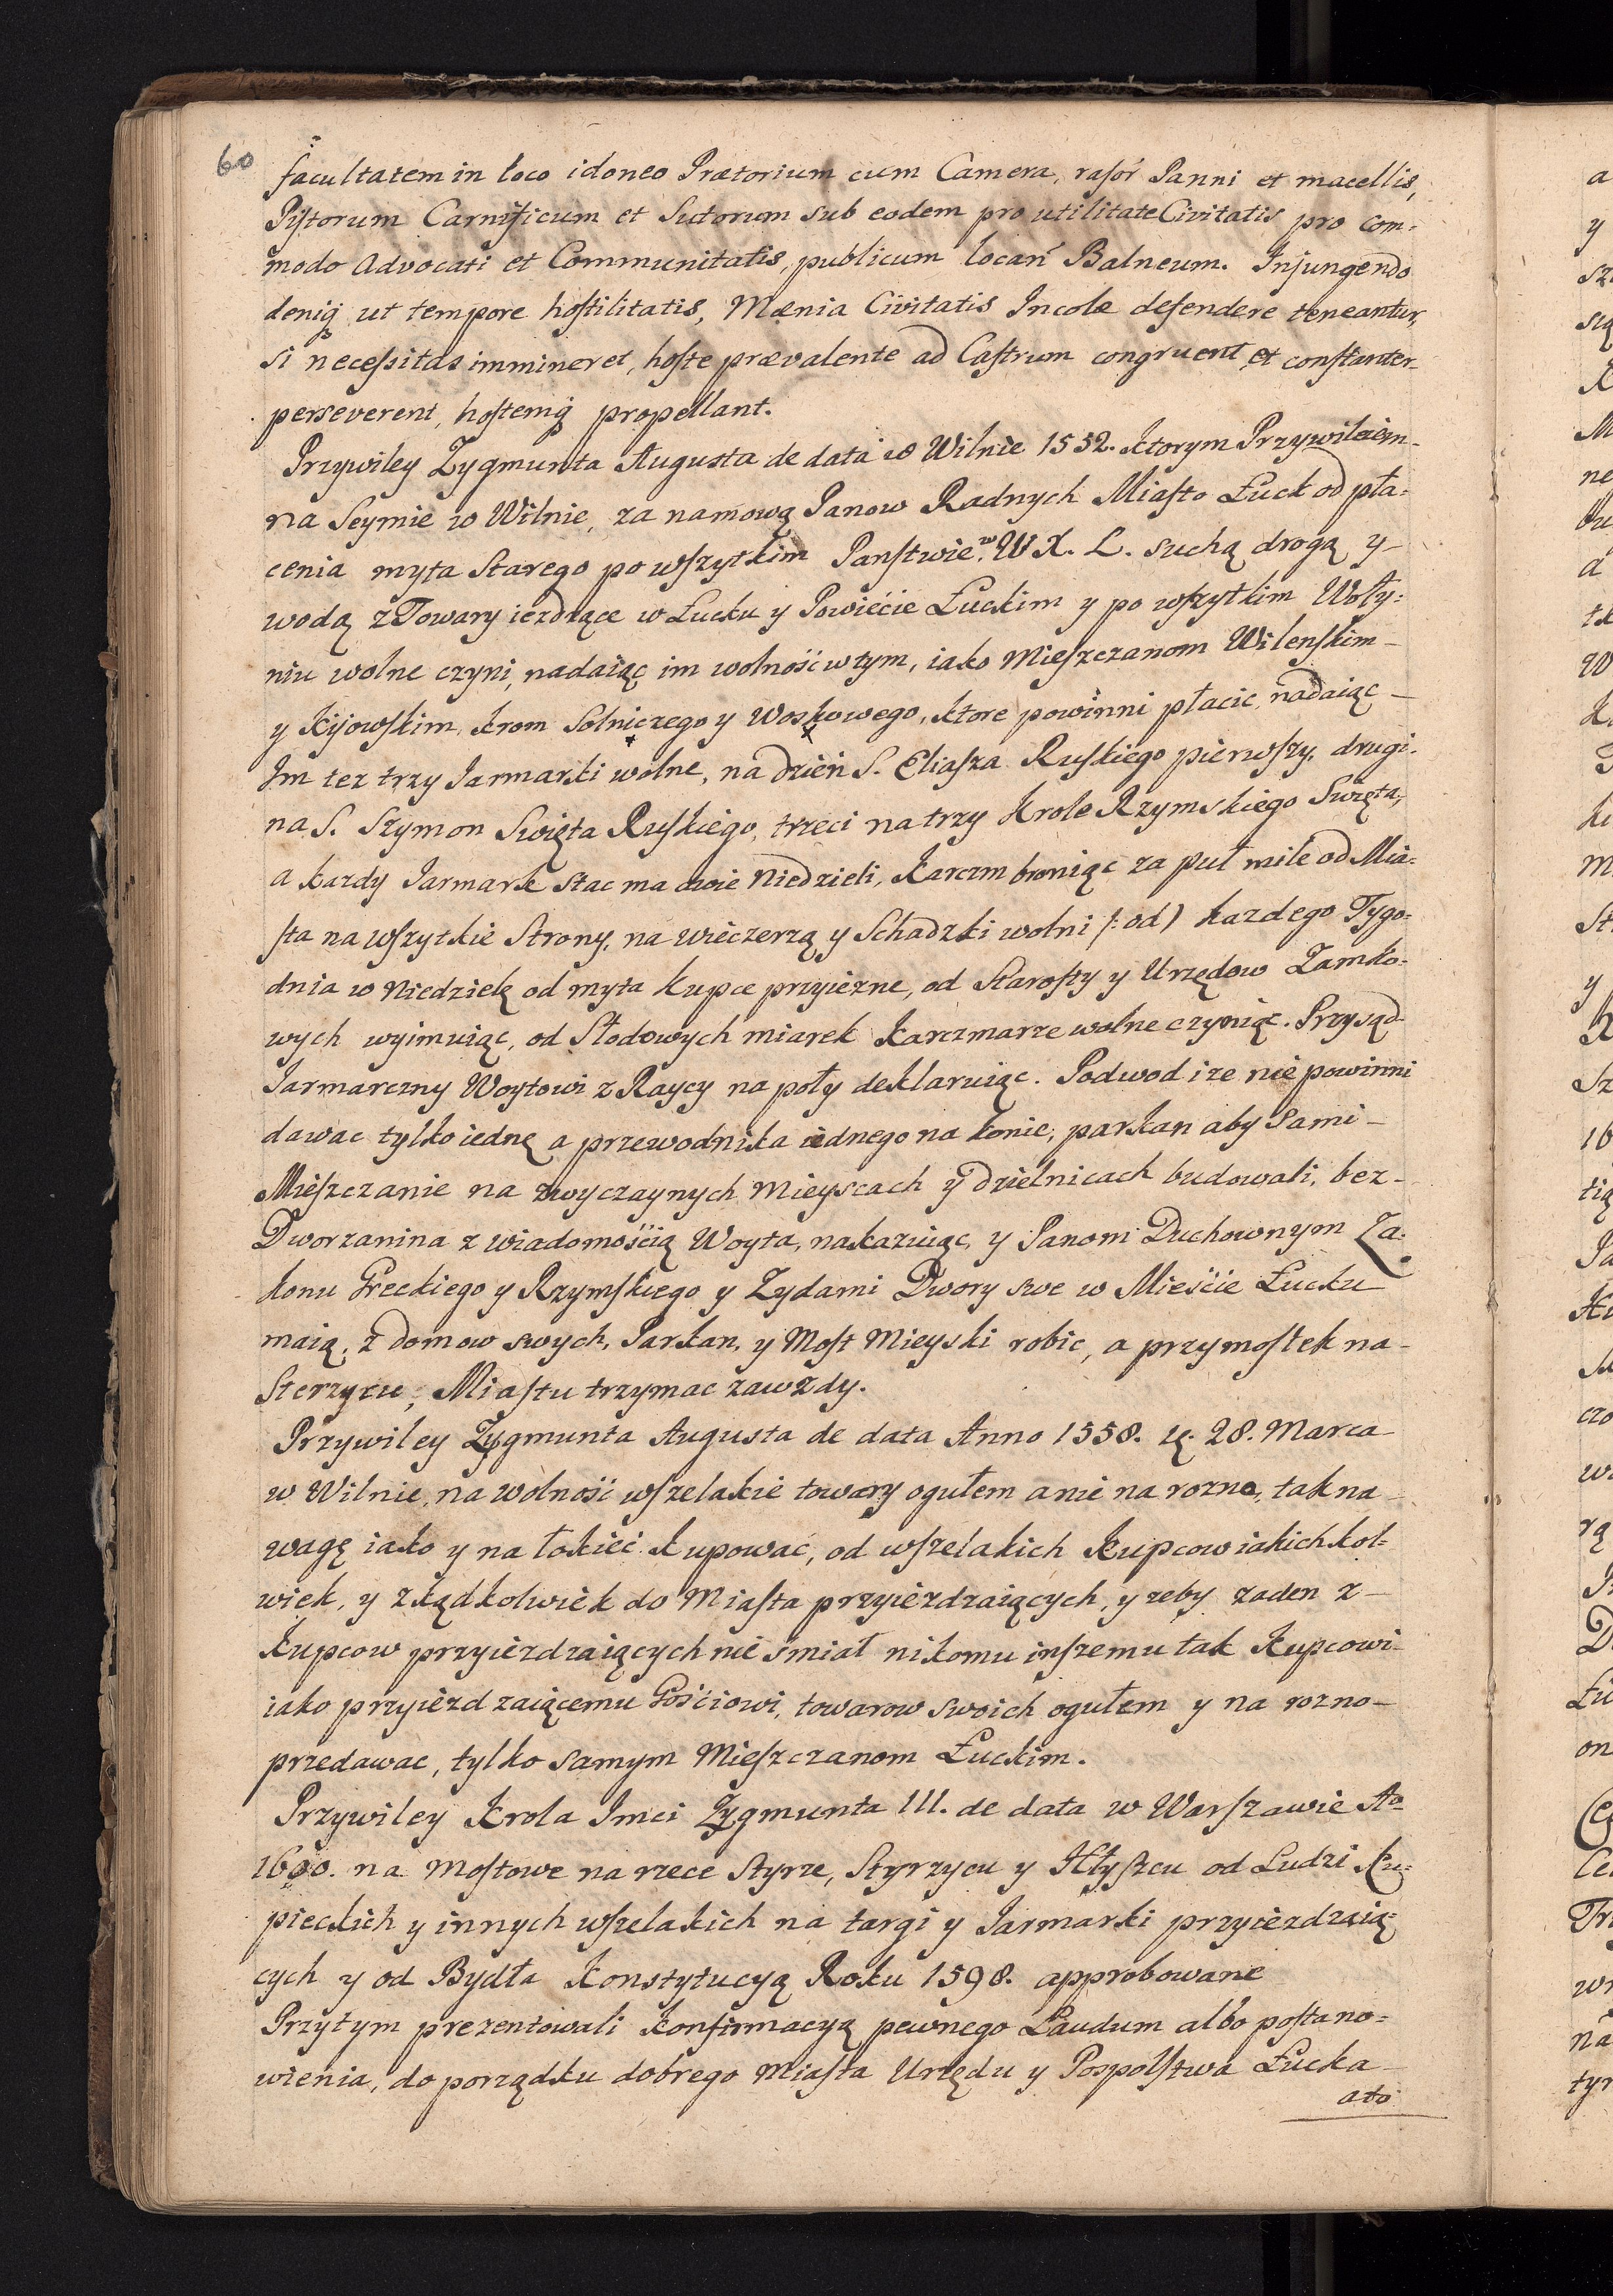 60
facultatem in loco idoneo Prætorium cum Camera, rasor Panni et macellis,
Pistorum Carnificum et Sutorum sub eodem pro utilitate Civitatis pro com=
modo Advocati et Communitatis, publicum locan Balneum. Injungendo
deniq ut tempore hostilitatis, Mænia Civitatis Incolæ defendere teneantur,
si necessitas immineret, hoste prævalente ad Castrum congruent et constanter
perseverent, hostemq propellant.
Przywiley Zygmunta Augusta de data w Wilnie 1552. Ktorym Przywileiem
na Seymie w Wilnie, za namową Panow Radnych Miasto Łuck od pła=
cenia myta Starego po wszytkim Panstwie w W X. L. suchą drogą y
wodą z Towary iezdzące w Łucku y Powiećie Łuckim y po wszytkim Woły=
niu wolne czyni, nadaiąc im wolność w tym, iako Mieszczanom Wilenskim
y Kijowskim, krom Solniczego y Woskowego, ktore powinni płacic, nadaiąc
Im tez trzy Jarmarki wolne, na dzień S. Eliasza Ruskiego pierwszy, drugi
na S. Szymon Swięta Ruskiego, trzeci na trzy Krole Rzymskiego Swięta,
a kazdy Jarmark stac ma dwie Niedzieli, Karczm broniąc za puł mile od Mia=
sta na wszytkie Strony, na wieczerzą y Schadzki wolni /: od) kazdego Tygo=
dnia w Niedzielę od myta kupce przyiezne, od Starosty y Urzędow Zamko=
wych wyimuiąc, od Słodowych miarek Karczmarze wolne czyniąc. Przysąd
Jarmarczny Woytowi z Raycy na poły deklaruiąc. Podwod ize nie powinni
dawac tylko iednę a przewodnika iednego na konie, parkan aby Sami
Mieszczanie na zwyczaynych Mieyscach y dzielnicach budowali, bez
Dworzanina z wiadomośćią Woyta, nakazuiąc, y Panom Duchownym Za=
konu Greckiego y Rzymskiego y Zydami Dwory swe w Mieśćie Łucku
maią, z domow swych, Parkan, y Most Mieyski robic, a przymostek na
Sterzycu, Miastu trzymac zawzdy.
Przywiley Zygmunta Augusta de data Anno 1558. 28. Marca
w Wilnie, na wolność wszelakie towary ogułem a nie na rozno, tak na
wagę iako y na łokieć kupowac, od wszelakich Kupcow iakichkol=
wiek, y zkądkolwiek do Miasta przyiezdzaiących, y zeby zaden z
Kupcow przyiezdzaiących nie smiał nikomu inszemu tak Kupcowi
iako przyiezdzaiącemu Gośćiowi, towarow swoich ogułem y na rozno
przedawac, tylko samym Mieszczanom Łuckim.
Przywiley Krola Imci Zygmunta III. de data w Warszawie Ao
1600. na Mostowe na rzece Styrze, Styrzycu y Hłyszcu od Ludzi Ku=
pieckich y innych wszelakich na targi y Jarmarki przyiezdzaią=
cych y od Bydła Konstytucyą Roku 1598. approbowane
Przytym prezentowali Konfirmacyą pewnego Laudum albo postano=
wienia, do porządku dobrego Miasta Urzędu y Pospolstwa Łucka
ato